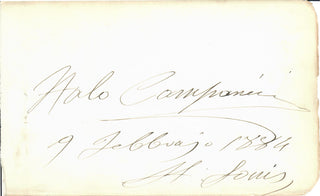 Italo Campanini
9 Febbrajo 1884
St. Louis